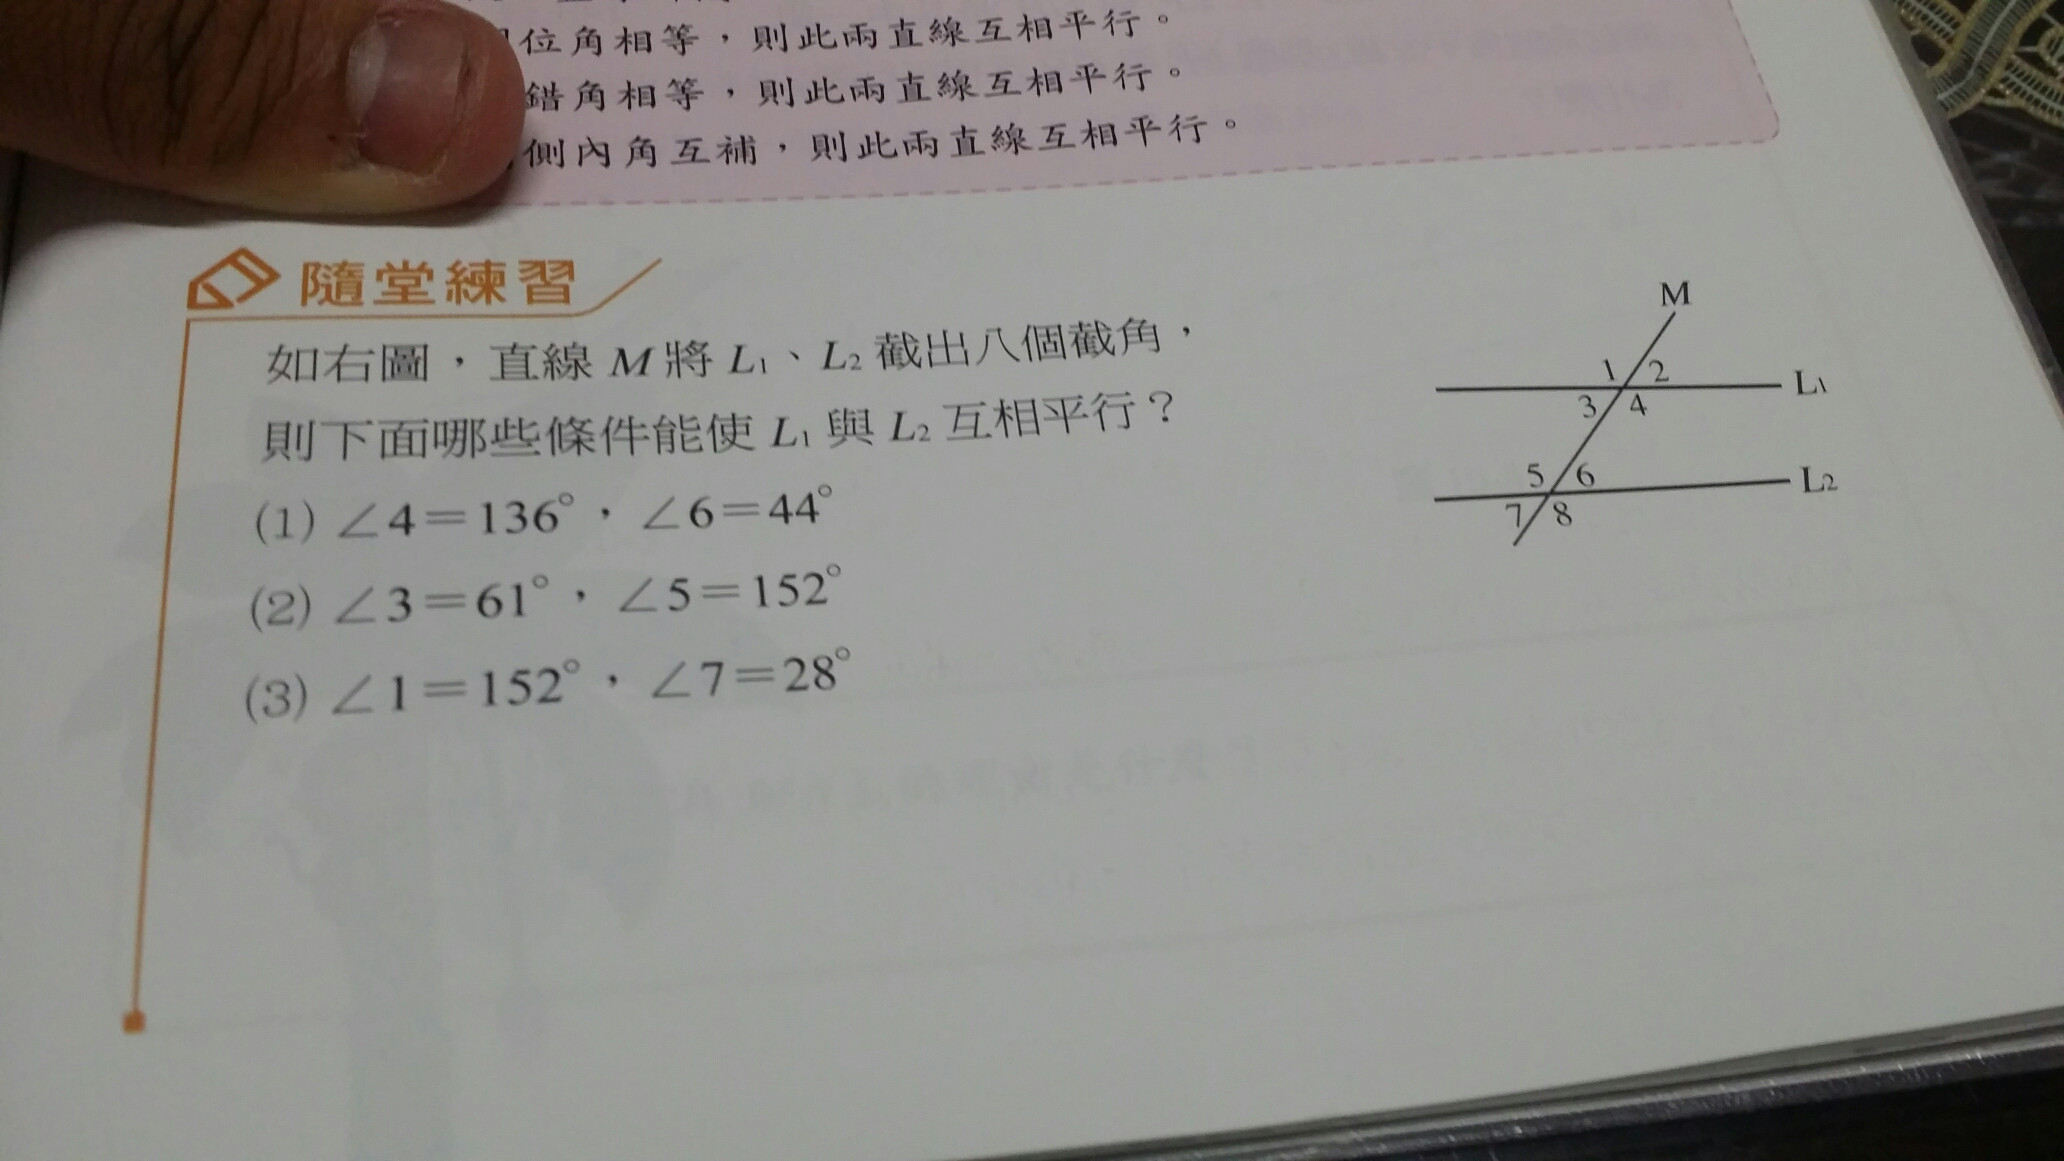 位角相等，則此兩直線互相平行。
錯角相等，則此兩直線互相平行。
側內角互補，則此兩直線互相平行。
隨堂練習
如右圖，直線 M 將 L₁、L₂ 截出八個截角，
則下面哪些條件能使 L₁ 與 L₂ 互相平行？
(1) ∠4＝136°，∠6＝44°
(2) ∠3＝61°，∠5＝152°
(3) ∠1＝152°，∠7＝28°
M
1 2
L₁
3 4
5 6
L₂
7 8